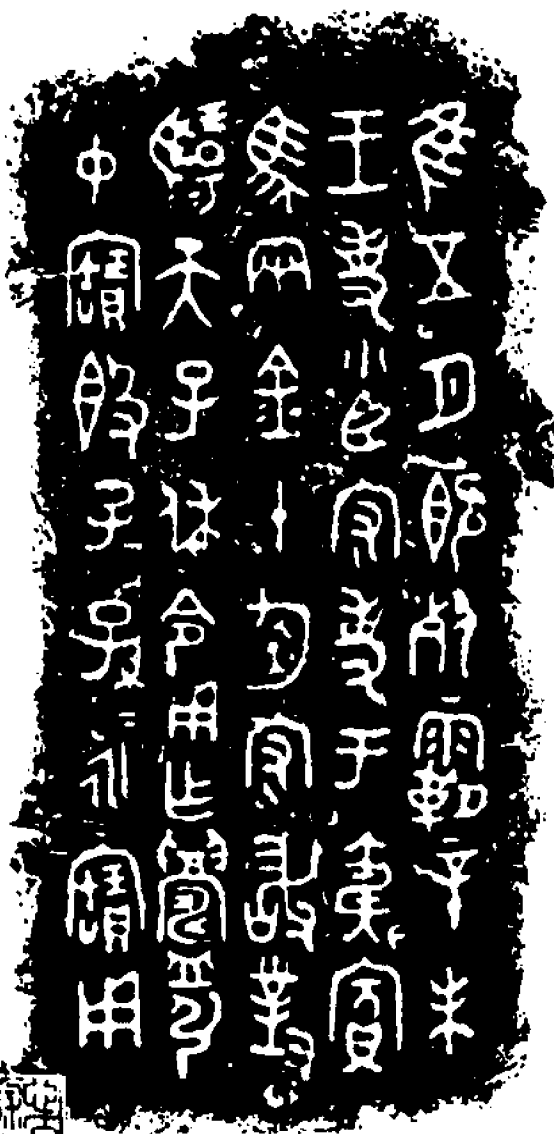 隹五月既死霸辛未
王吏小臣守吏于夷賓
馬兩金十鈞守敢對
揚天子休令用作鑄引
中寶簋子孫永寶用